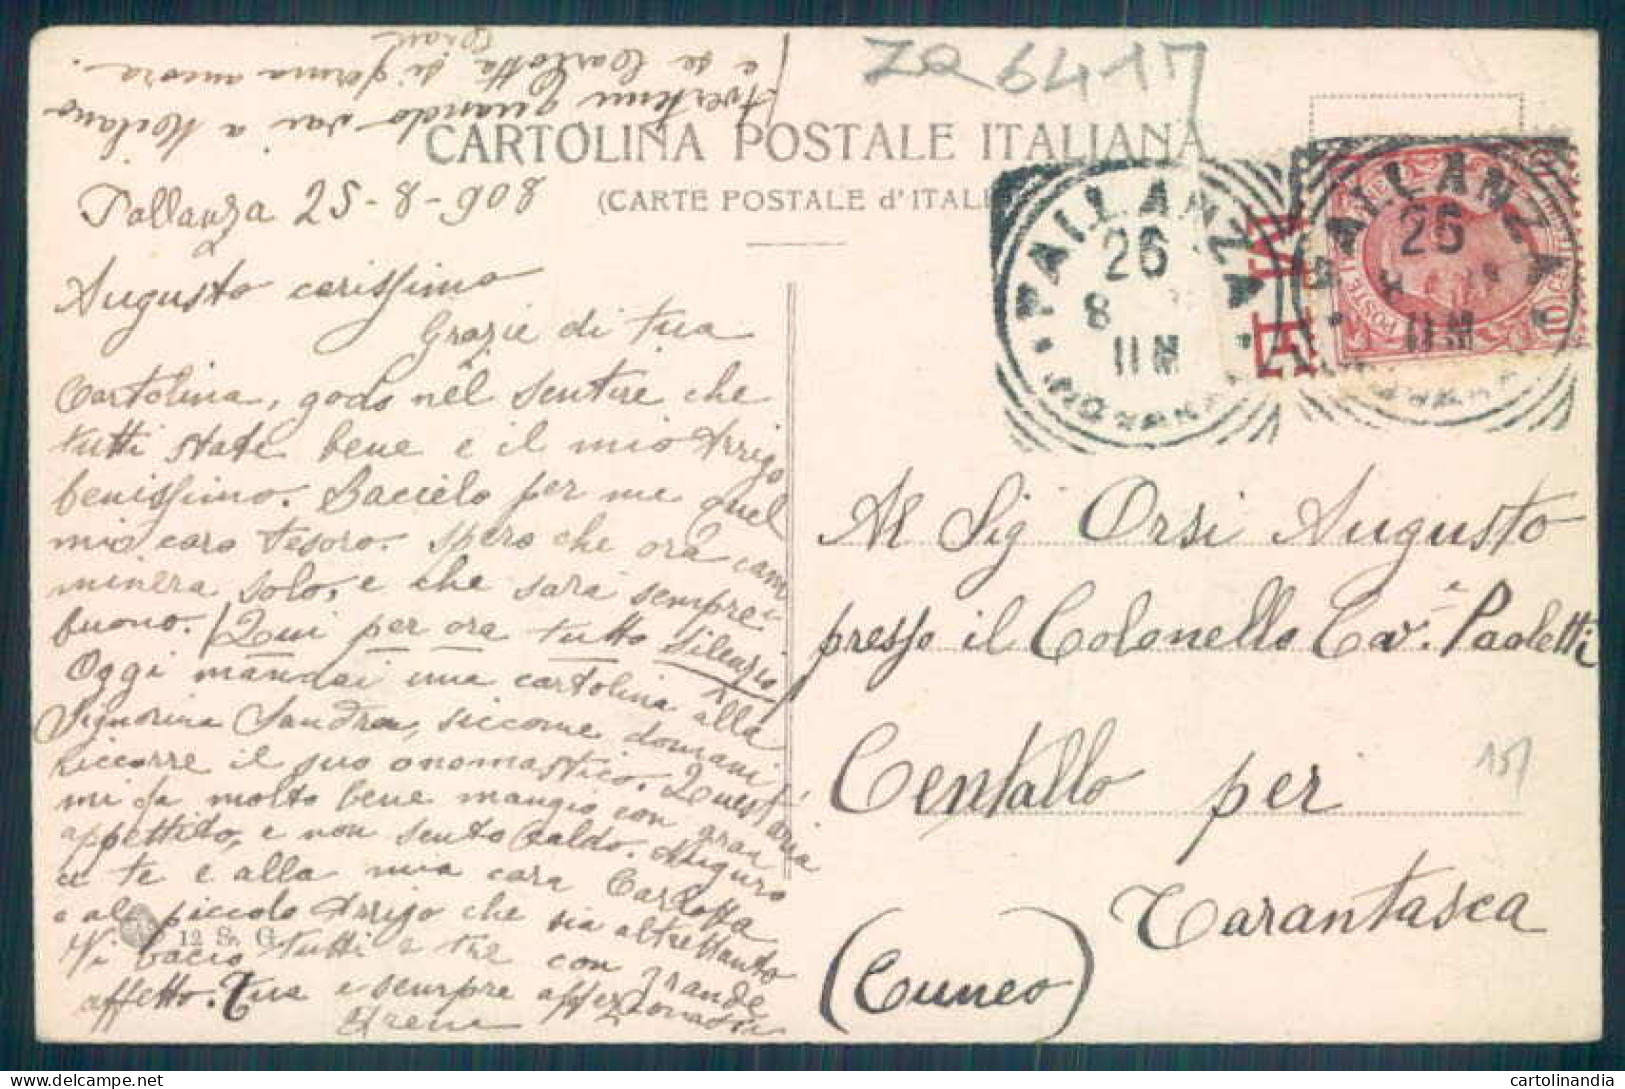 Avertimi quando vai a Milano
e se Carlotta si ferma ancora.
ZQ 6417
CARTOLINA POSTALE ITALIANA
(CARTE POSTALE d'ITALI
Pallanza 25-8-908
Augusto carissimo
Grazie di tua
Cartolina, godo nel sentire che
tutti state bene e il mio Arrigo
benissimo. Bacielo per me quel
mio caro tesoro. Spero che ora cam
minera solo, e che sarà sempre
buono. Qui per ora tutto silenzio
Oggi mandai una cartolina alla
Signorina Sandra, siccome domani
riccorre il suo onomastico. Quest'aria
mi fa molto bene mangio con gran
appettito, e non sento caldo. Auguro
a te e alla mia cara Carlotta
e al piccolo Arrigo che sia altrettanto
Vi bacio tutti e tre con grande
affetto. Tua e sempre affezionatissima
Irene
12 S. G.
PALLANZA
26
8
11 M
NOVARA
PALLANZA
26
8
11 M
POSTE
Al Sig Orsi Augusto
presso il Colonello Cav.e Paoletti
Centallo per
Tarantasca
(Cuneo)
15/
cartolinandia